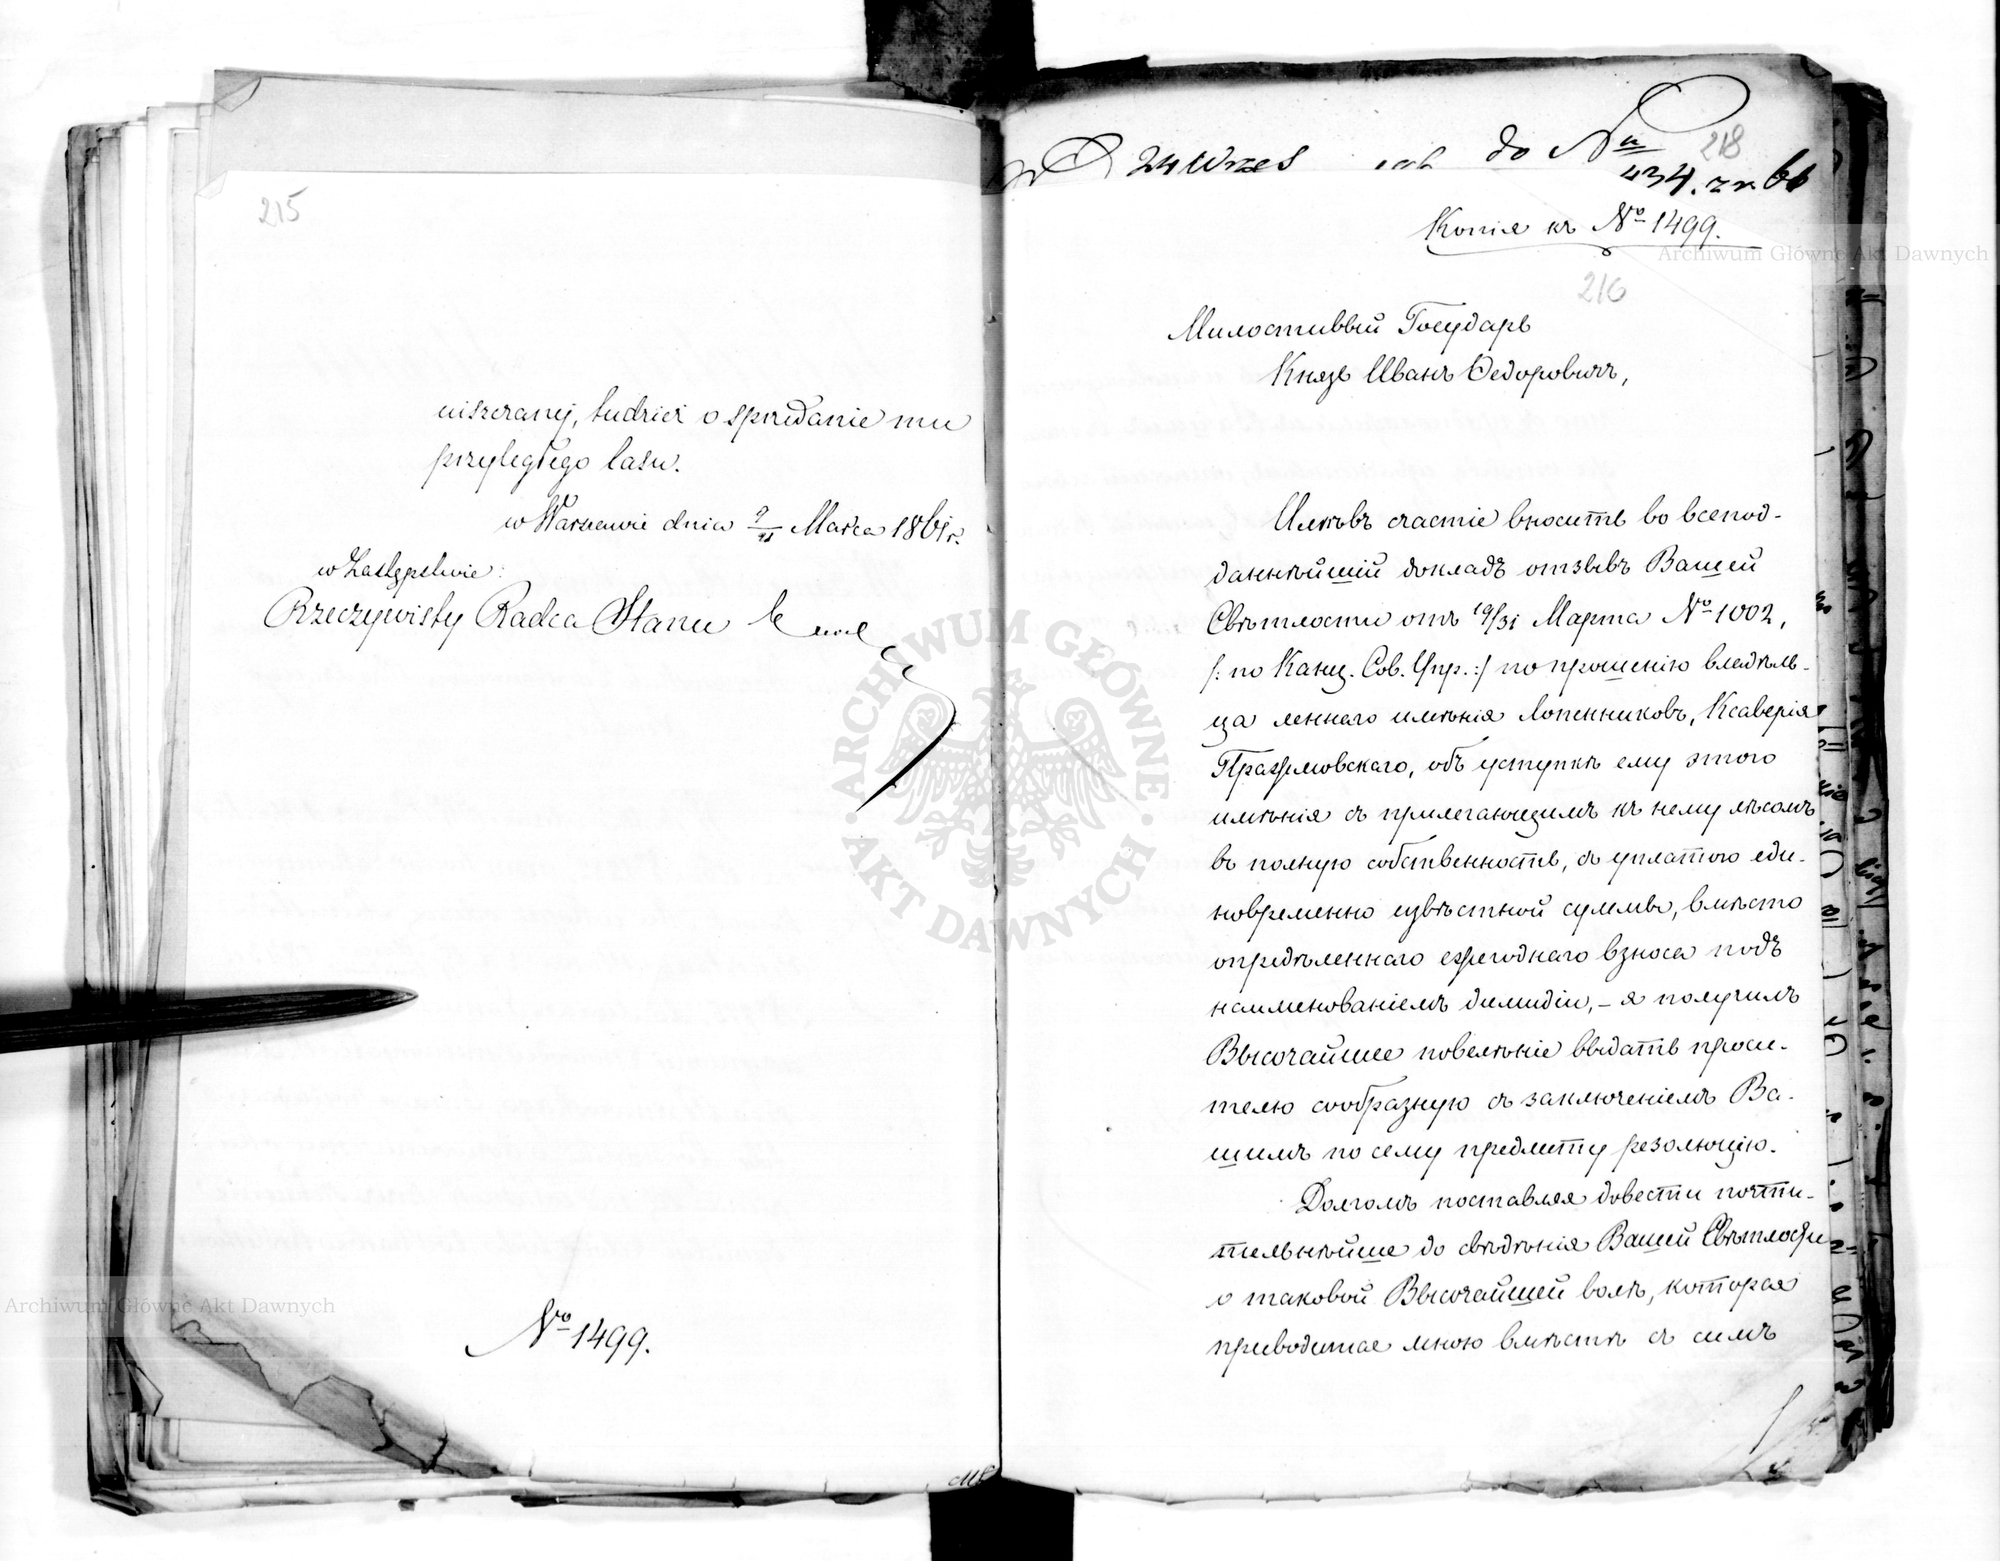 215
niszczonej, tudzież o sprzedanie mu
przyległego lasu.
w Warszawie dnia 9/21 Marca 1861 r.
w Zastępstwie:
Rzeczywisty Radca Stanu
№ 1499.
24 Wrześ do №
218
434. za 61
Копія къ № 1499.
216
Милостивый Государь
Князь Иванъ Ѳедоровичъ,
Имѣвъ счастіе вносить во всепод-
даннѣйшій докладъ отзывъ Вашей
Свѣтлости отъ 19/31 Марта № 1002,
/: по Канц. Сов. Упр.:/ по прошенію владѣль-
ца леннаго имѣнія Лопенниковъ, Ксаверія
Пражмовскаго, объ уступкѣ ему этого
имѣнія съ прилегающимъ къ нему лѣсомъ
въ полную собственность, съ уплатою еди-
новременно извѣстной суммы, вмѣсто
опредѣленнаго ежегоднаго взноса подъ
наименованіемъ димидіи, – я получилъ
Высочайшее повелѣніе выдать проси-
телю сообразную съ заключеніемъ Ва-
шимъ по сему предмету резолюцію.
Долгомъ поставляя довести почти-
тельнѣйше до свѣдѣнія Вашей Свѣтлости
о таковой Высочайшей волѣ, которая
приводится мною вмѣстѣ съ симъ
Archiwum Główne Akt Dawnych
ARCHIWUM GŁÓWNE · AKT DAWNYCH ·
Archiwum Główne Akt Dawnych